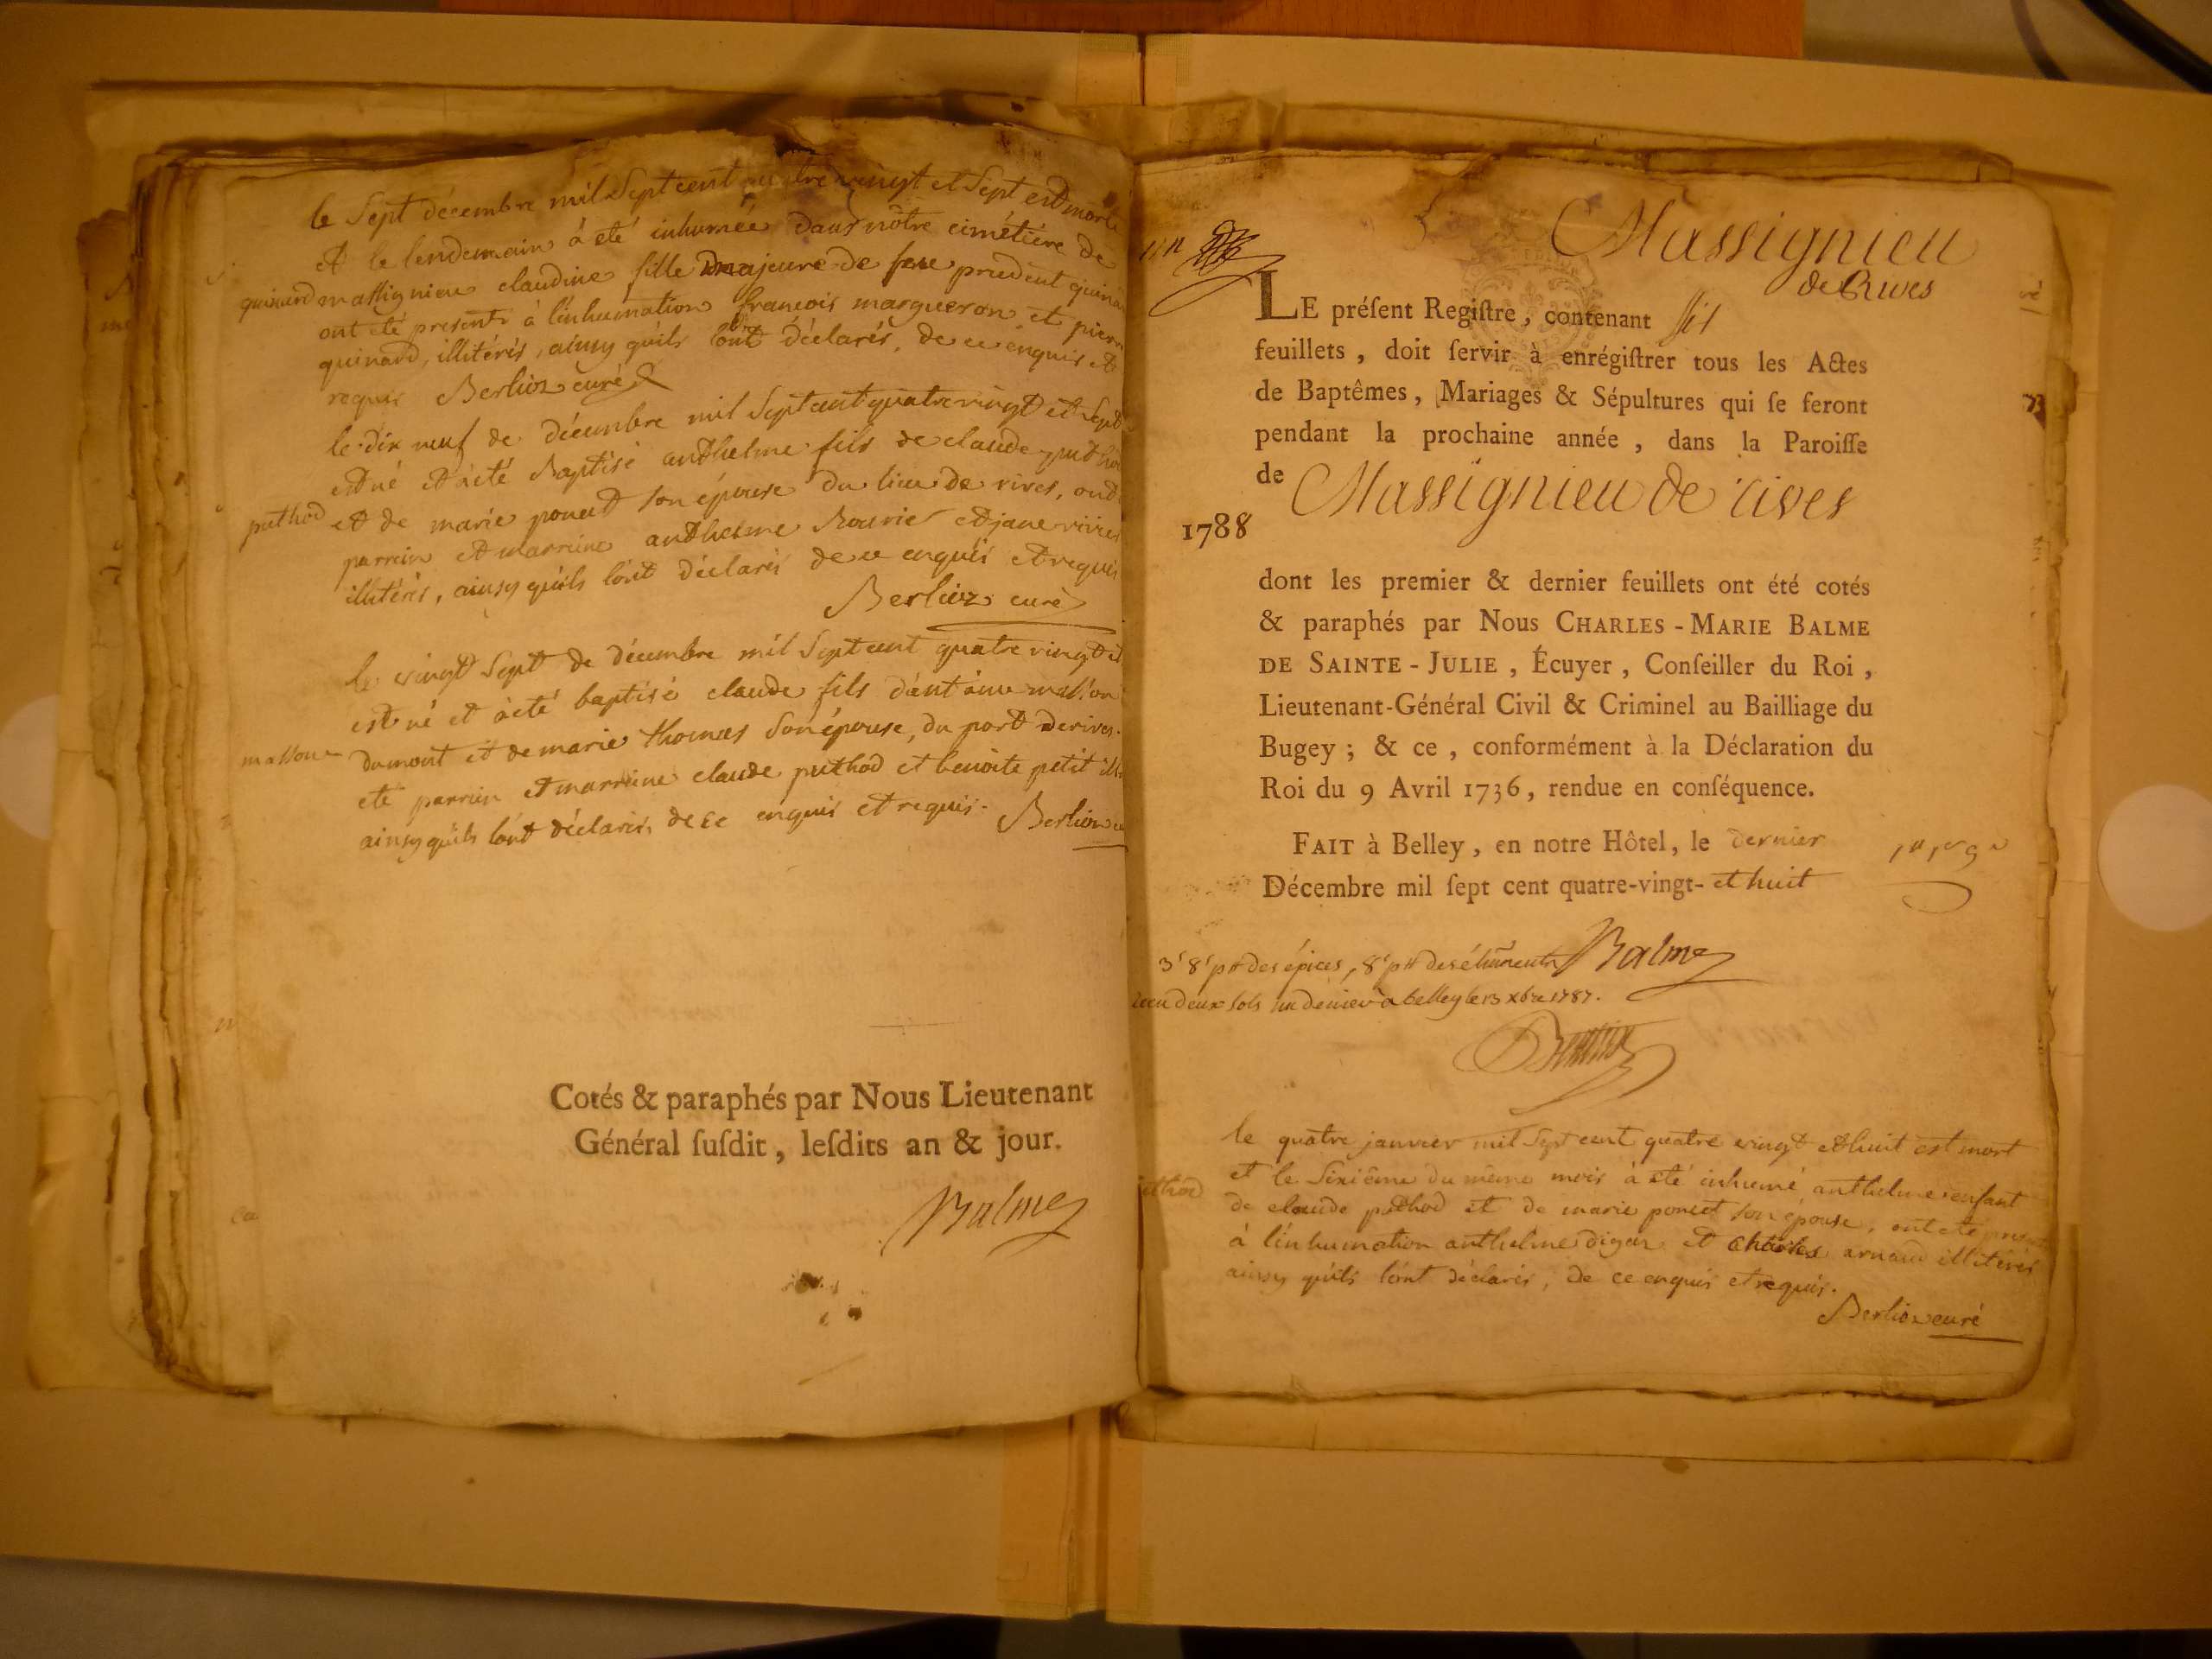 le Sept décembre mil Sept cent quatre vingt et Sept est morte
et le lendemain à eté inhumée dans nôtre cimétière de
quinard
massignieu claudine fille majeure de feu prudent quinar
ont eté presents à l'inhumation francois margueron et pierre
quinard, illitérés, ainsy qu'ils l'ont déclarés, de ce enquis et
requis Berlioz curé
le dix neuf de décembre mil Sept cent quatre vingt et Sept
est né et à eté Baptisé anthelme fils de claude putho
puthod
et de marie poncet son épouse du lieu de rives, ont
parrein et marreine anthelme et jane
illitérés, ainsy qu'ils l'ont déclarés de ce enquis et requis
Berlioz curé
le vingt Sept de décembre mil Sept cent quatre vingt et
est né et à eté baptisé claude fils d'antoine masson
masson
dumont et de marie thomas son épouse, du port de rives.
eté parrein et marreine claude puthod et benoite petit ill
ainsy qu'ils l'ont déclarés, de ce enquis et requis. Berlioz cu
Cotés & paraphés par Nous Lieutenant
Général ſuſdit, leſdits an & jour.
Balme
Massignieu
de Rives
LE préſent Regiſtre, contenant six
feuillets, doit ſervir à enrégiſtrer tous les Actes
de Baptêmes, Mariages & Sépultures qui ſe feront
pendant la prochaine année, dans la Paroiſſe
de Massignieu de rives
1788
dont les premier & dernier feuillets ont été cotés
& paraphés par Nous CHARLES-MARIE BALME
DE SAINTE-JULIE, Écuyer, Conſeiller du Roi,
Lieutenant-Général Civil & Criminel au Bailliage du
Bugey; & ce, conformément à la Déclaration du
Roi du 9 Avril 1736, rendue en conſéquence.
FAIT à Belley, en notre Hôtel, le dernier
Décembre mil ſept cent quatre-vingt- et huit
des épices, Balme
deux sols un denier à belley le 13 xbre 1787.
le quatre janvier mil Sept cent quatre vingt et huit est mort
et le Sixième du même mois à eté inhumé anthelme enfant
puthod
de claude puthod et de marie poncet son épouse, ont eté présents
à l'inhumation anthelme digar et Charles arnaud illitérés
ainsy qu'ils l'ont déclarés, de ce enquis et requis.
Berlioz curé